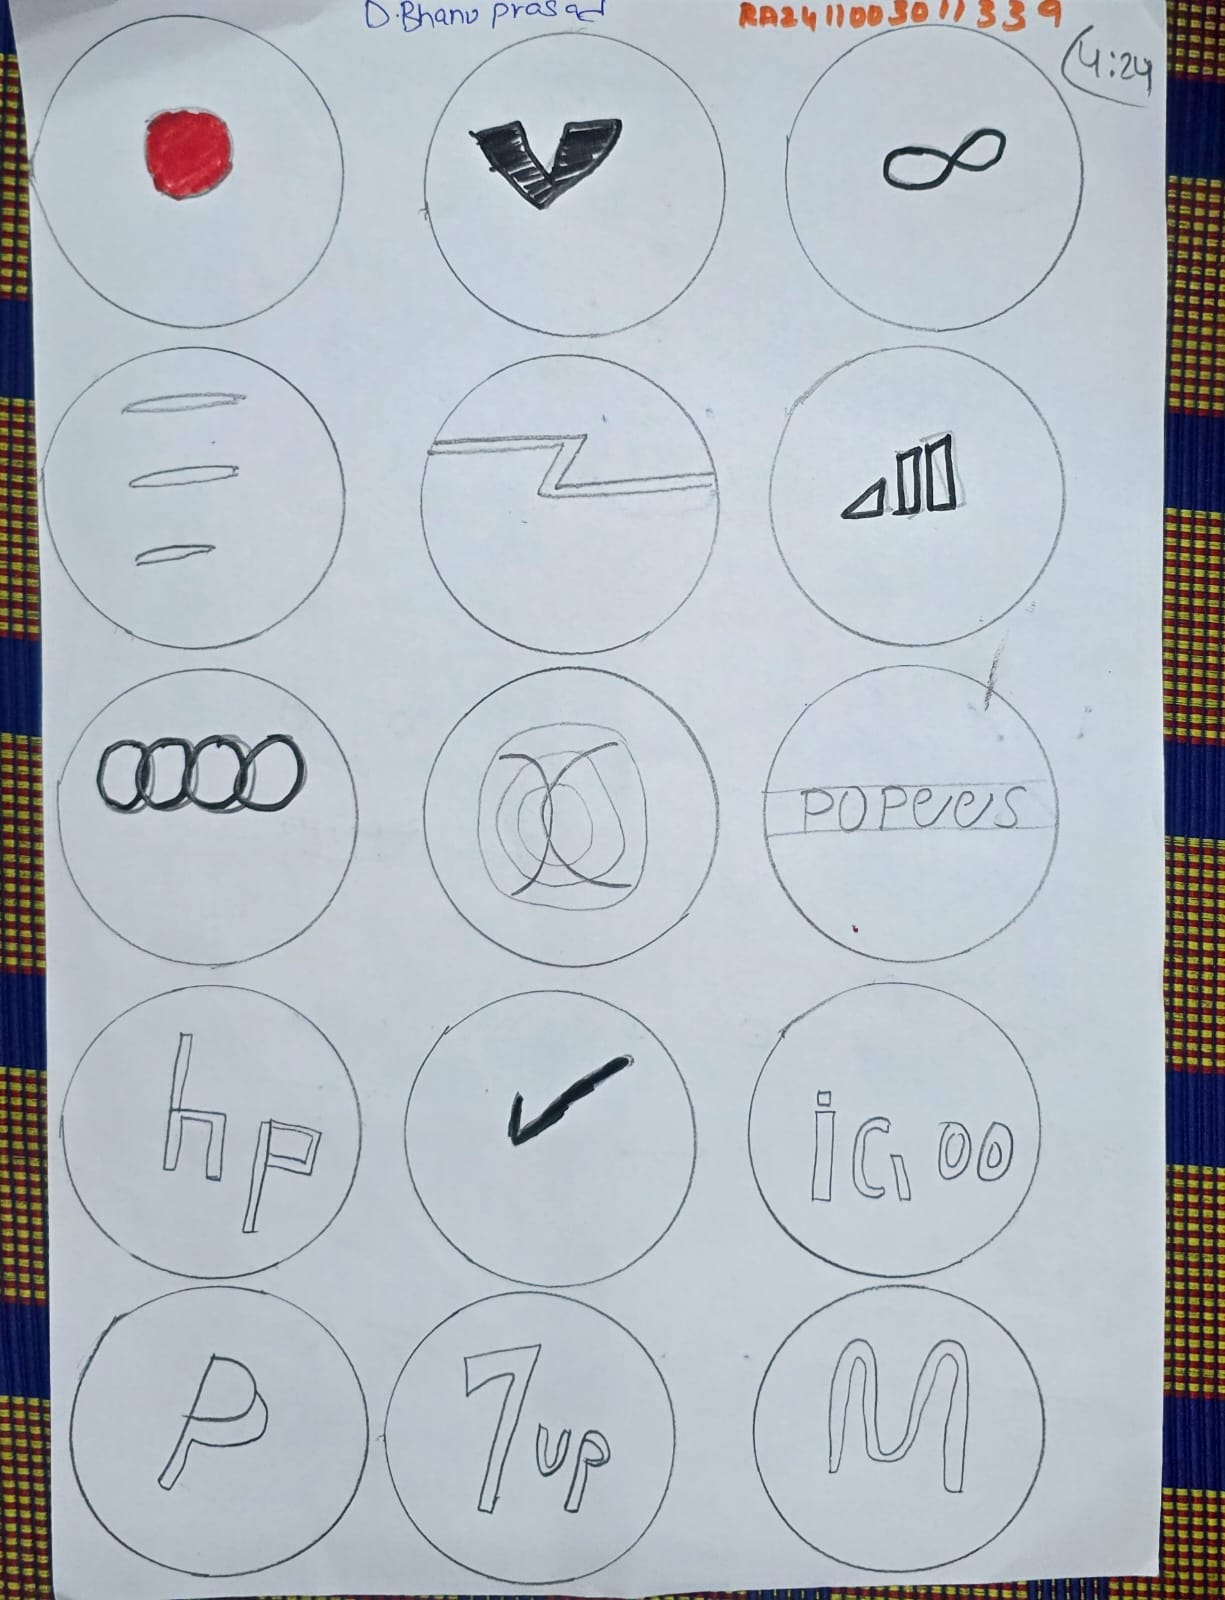 D.Bhanu prasad RA2411003011339
4:24
POPees
hp
iGoo
P
7up
M